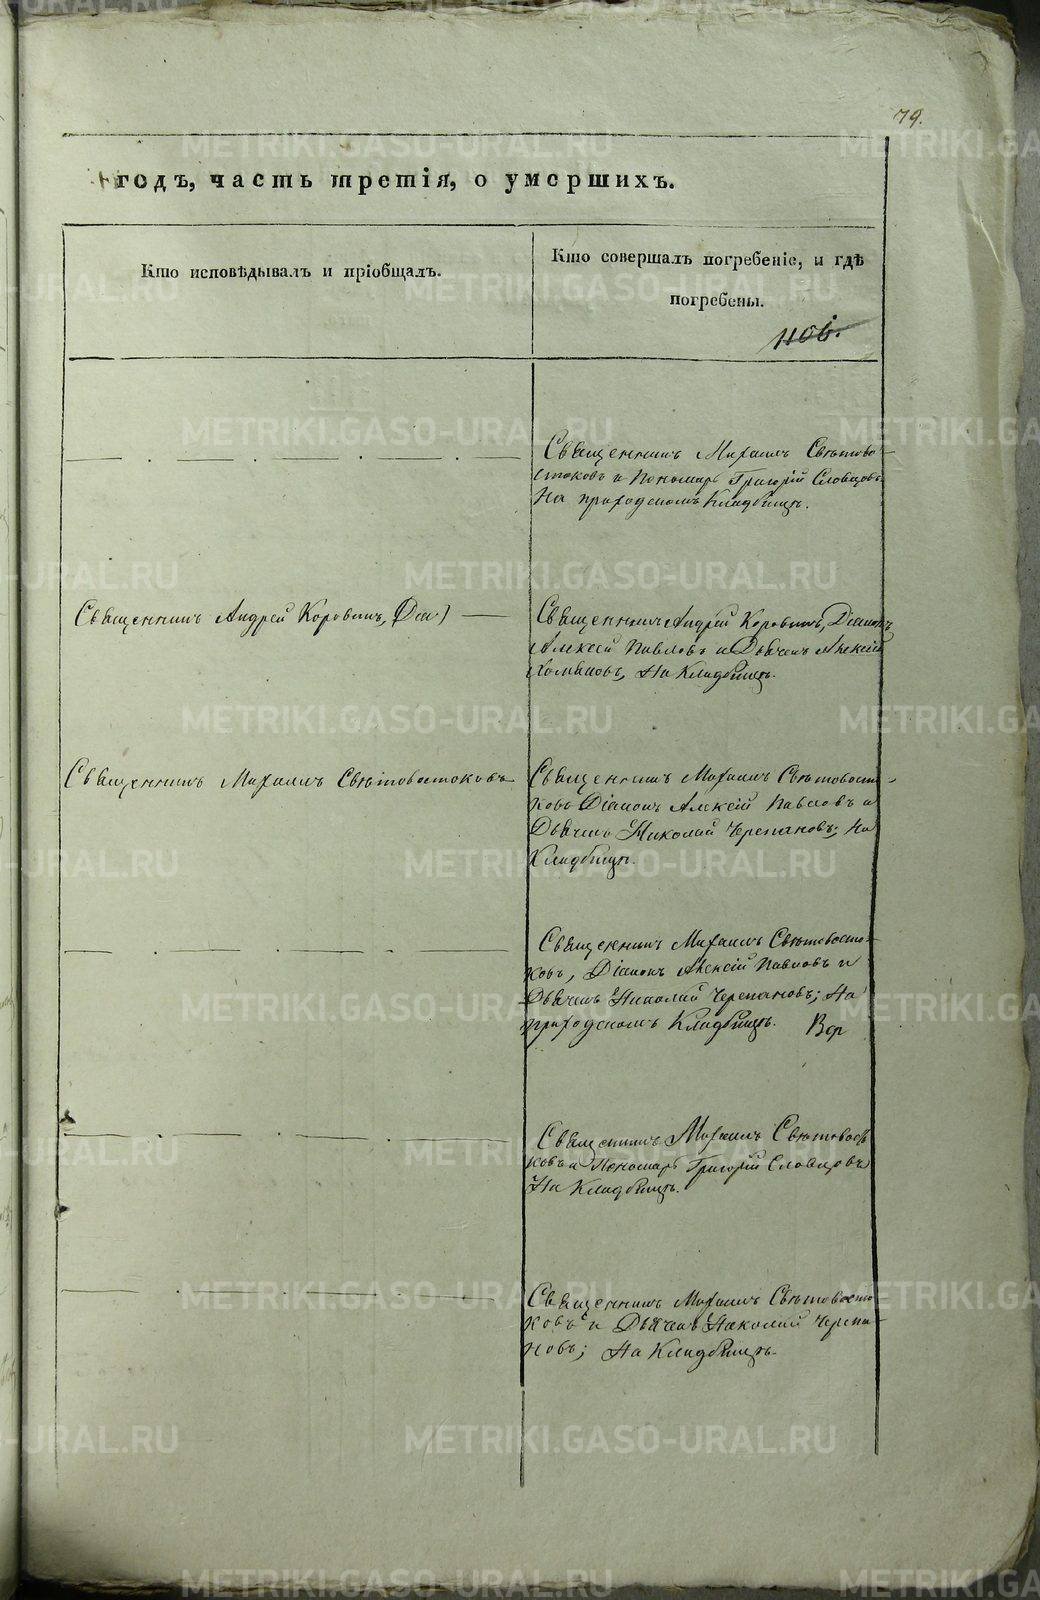 79.
годъ, часть третія, о умершихъ.
Кто исповѣдывалъ и пріобщалъ.
Кто совершалъ погребеніе, и гдѣ
погребены.
Священникъ Михаилъ Свѣтово-
стоковъ и Пономарь Григорій Словцовъ
На приходскомъ Кладбищѣ.
Священникъ Андрей Коровинъ,
Священникъ Андрей Коровинъ, Діаконъ
Алексѣй Павловъ и Дьячекъ Алексѣй
На Кладбищѣ.
Священникъ Михаилъ Свѣтовостоковъ
Священникъ Михаилъ Свѣтовосто-
ковъ Діаконъ Алексѣй Павловъ и
Дьячекъ Николай Черепановъ; На
Кладбищѣ.
Священникъ Михаилъ Свѣтовосто-
ковъ, Діаконъ Алексѣй Павловъ и
Дьячекъ Николай Черепановъ; На
приходскомъ Кладбищѣ.
Священникъ Михаилъ Свѣтовосто
ковъ и Пономарь Григорій Словцовъ
На Кладбищѣ.
Священникъ Михаилъ Свѣтовосто
ковъ и Дьячекъ Николай Черепа-
новъ; На Кладбищѣ.
METRIKI.GASO-URAL.RU